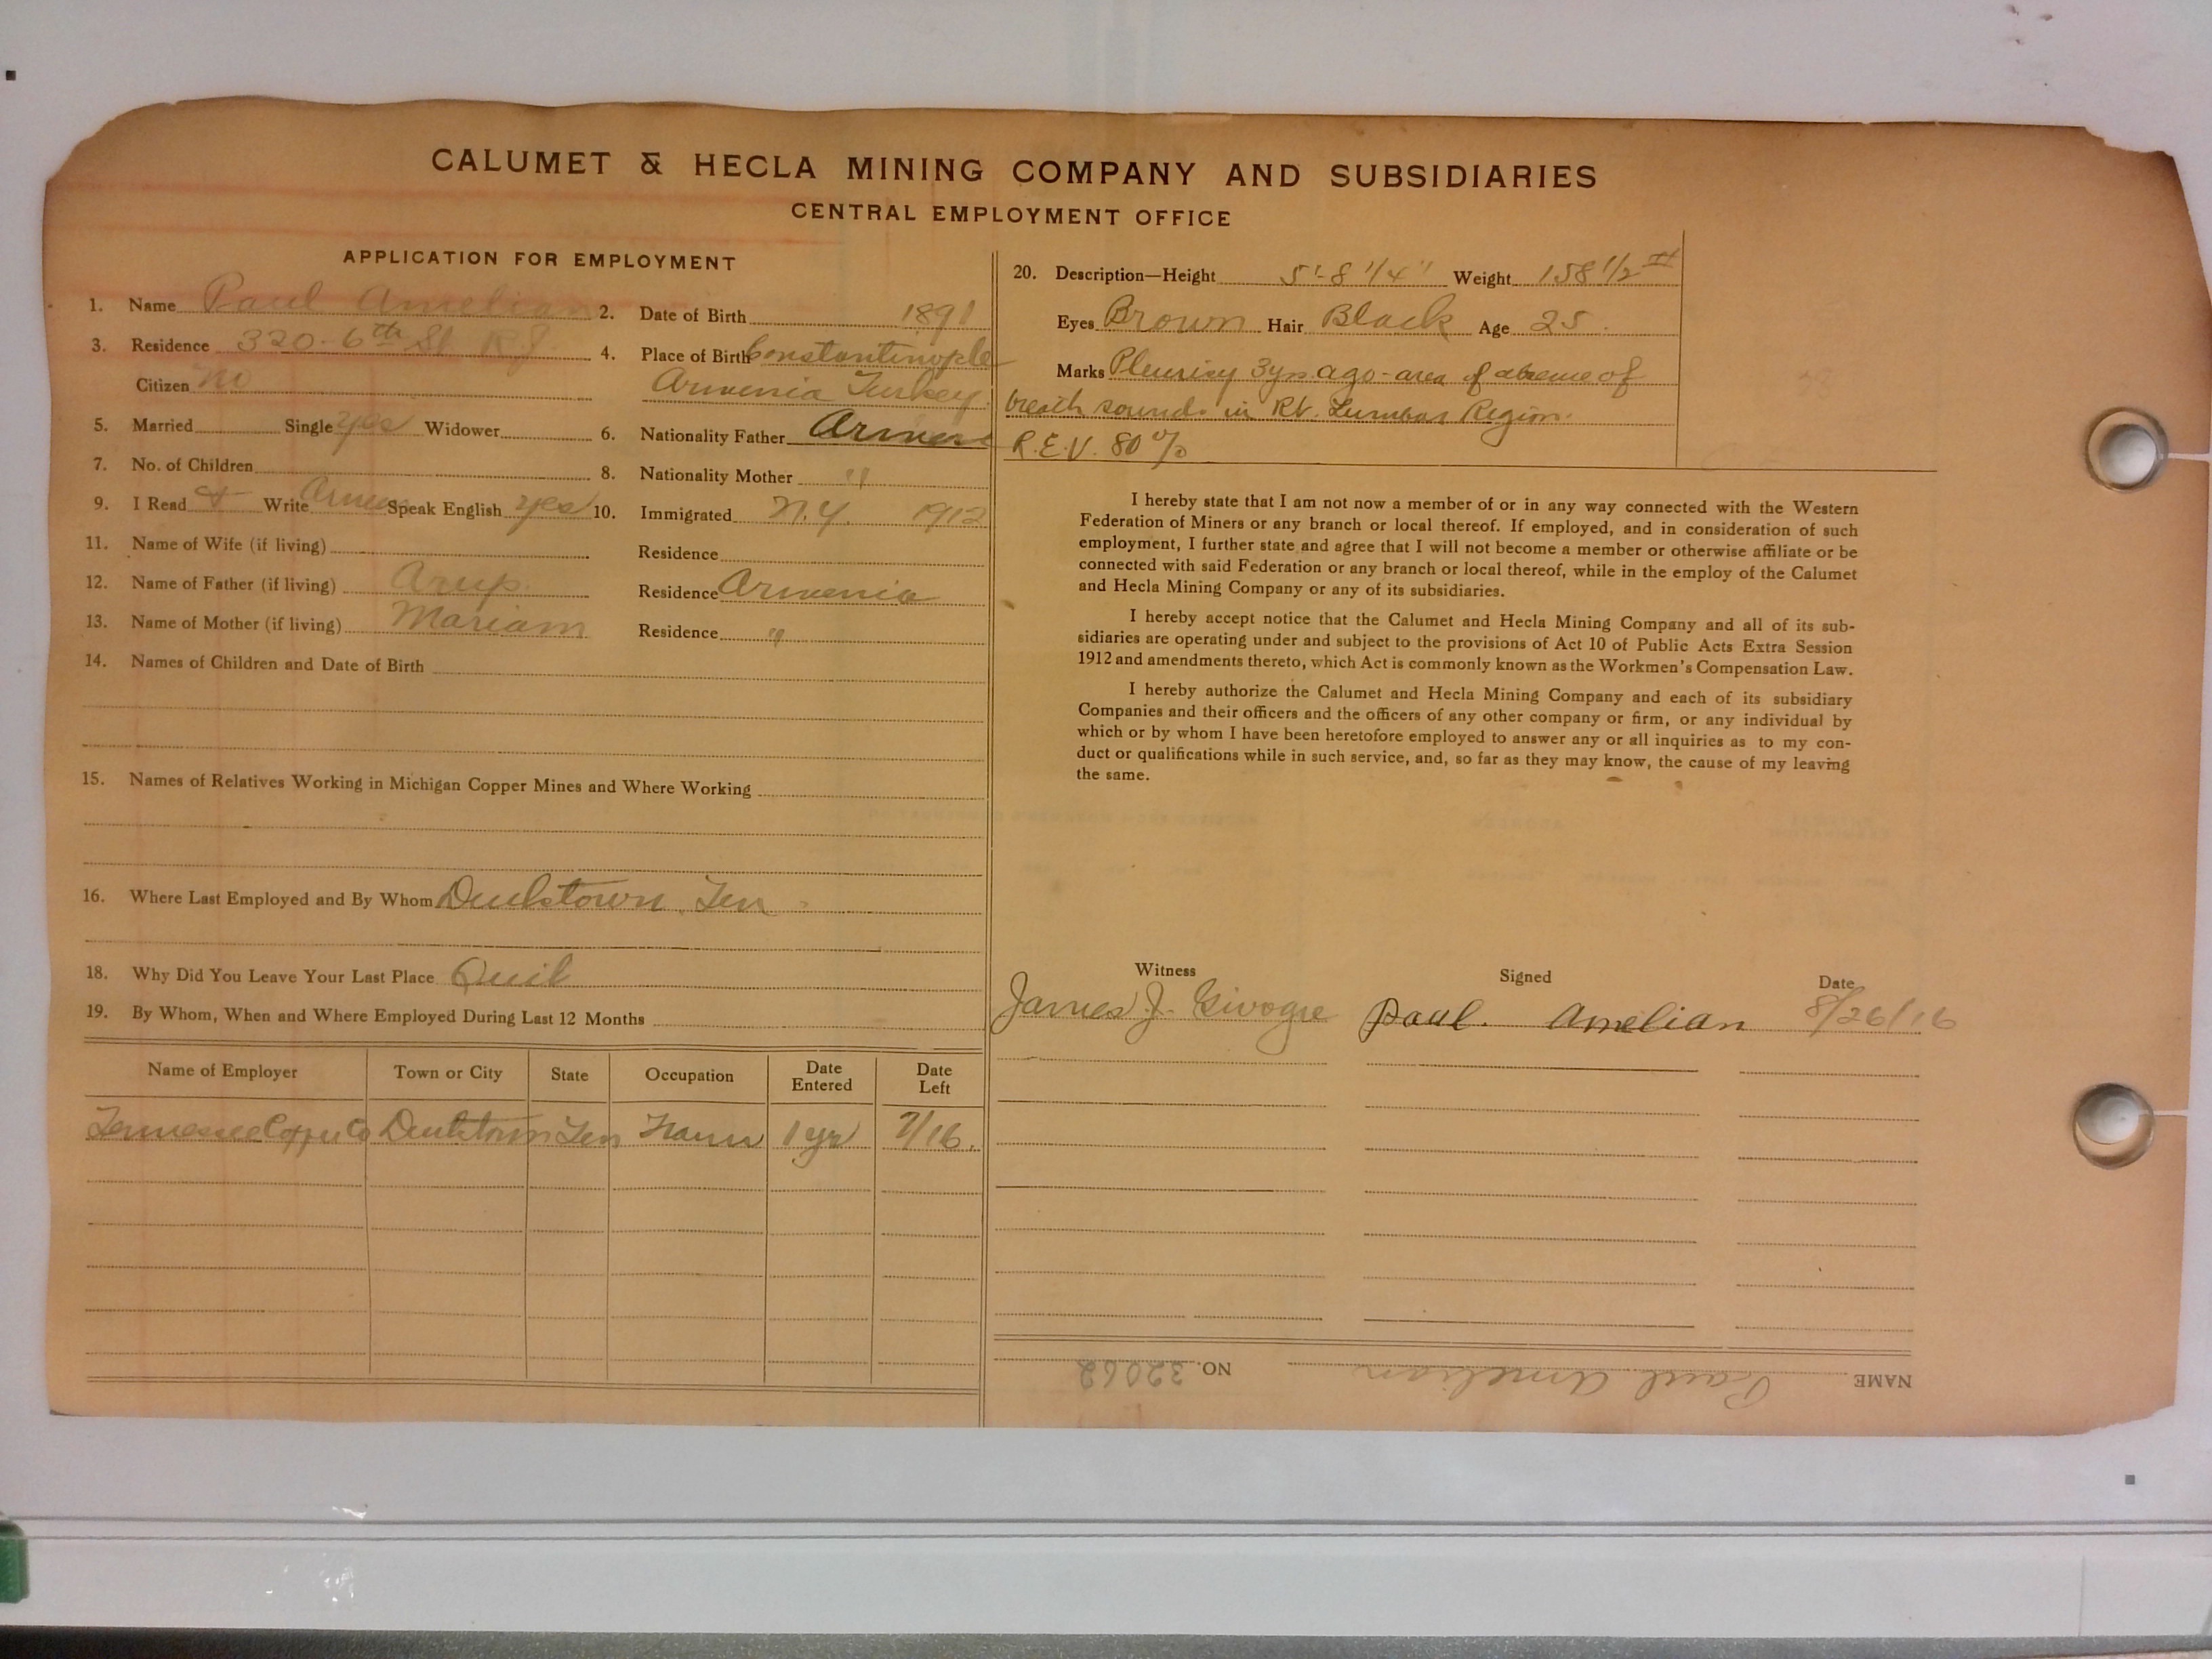 CALUMET & HECLA MINING COMPANY AND SUBSIDIARIES
CENTRAL EMPLOYMENT OFFICE
APPLICATION FOR EMPLOYMENT
1. Name Paul Amelian 2. Date of Birth 1891
3. Residence 320-6th St. 4. Place of Birth Constantinople
Citizen no Armenia Turkey
5. Married Single yes Widower 6. Nationality Father Armen
7. No. of Children 8. Nationality Mother "
9. I Read & Write Armen Speak English yes 10. Immigrated N.Y. 1912
11. Name of Wife (if living) Residence
12. Name of Father (if living) Arup Residence Armenia
13. Name of Mother (if living) Mariam Residence "
14. Names of Children and Date of Birth
15. Names of Relatives Working in Michigan Copper Mines and Where Working
16. Where Last Employed and By Whom Ducktown Ten
18. Why Did You Leave Your Last Place Quit
19. By Whom, When and Where Employed During Last 12 Months
Name of Employer Town or City State Occupation Date Entered Date Left
Tennessee Copper Co Ducktown Ten 1 yr 7/16.
20. Description—Height 5'-8 1/4" Weight 158 1/2 #
Eyes Brown Hair Black Age 25.
Marks Pleurisy 3 yrs ago - area of absence of
breath sounds in Rt. Lumbar Region.
R.E.V. 80%
I hereby state that I am not now a member of or in any way connected with the Western
Federation of Miners or any branch or local thereof. If employed, and in consideration of such
employment, I further state and agree that I will not become a member or otherwise affiliate or be
connected with said Federation or any branch or local thereof, while in the employ of the Calumet
and Hecla Mining Company or any of its subsidiaries.
I hereby accept notice that the Calumet and Hecla Mining Company and all of its sub-
sidiaries are operating under and subject to the provisions of Act 10 of Public Acts Extra Session
1912 and amendments thereto, which Act is commonly known as the Workmen's Compensation Law.
I hereby authorize the Calumet and Hecla Mining Company and each of its subsidiary
Companies and their officers and the officers of any other company or firm, or any individual by
which or by whom I have been heretofore employed to answer any or all inquiries as to my con-
duct or qualifications while in such service, and, so far as they may know, the cause of my leaving
the same.
Witness Signed Date
James J. Paul. Amelian 8/26/16
NAME Paul Amelian NO. 32062